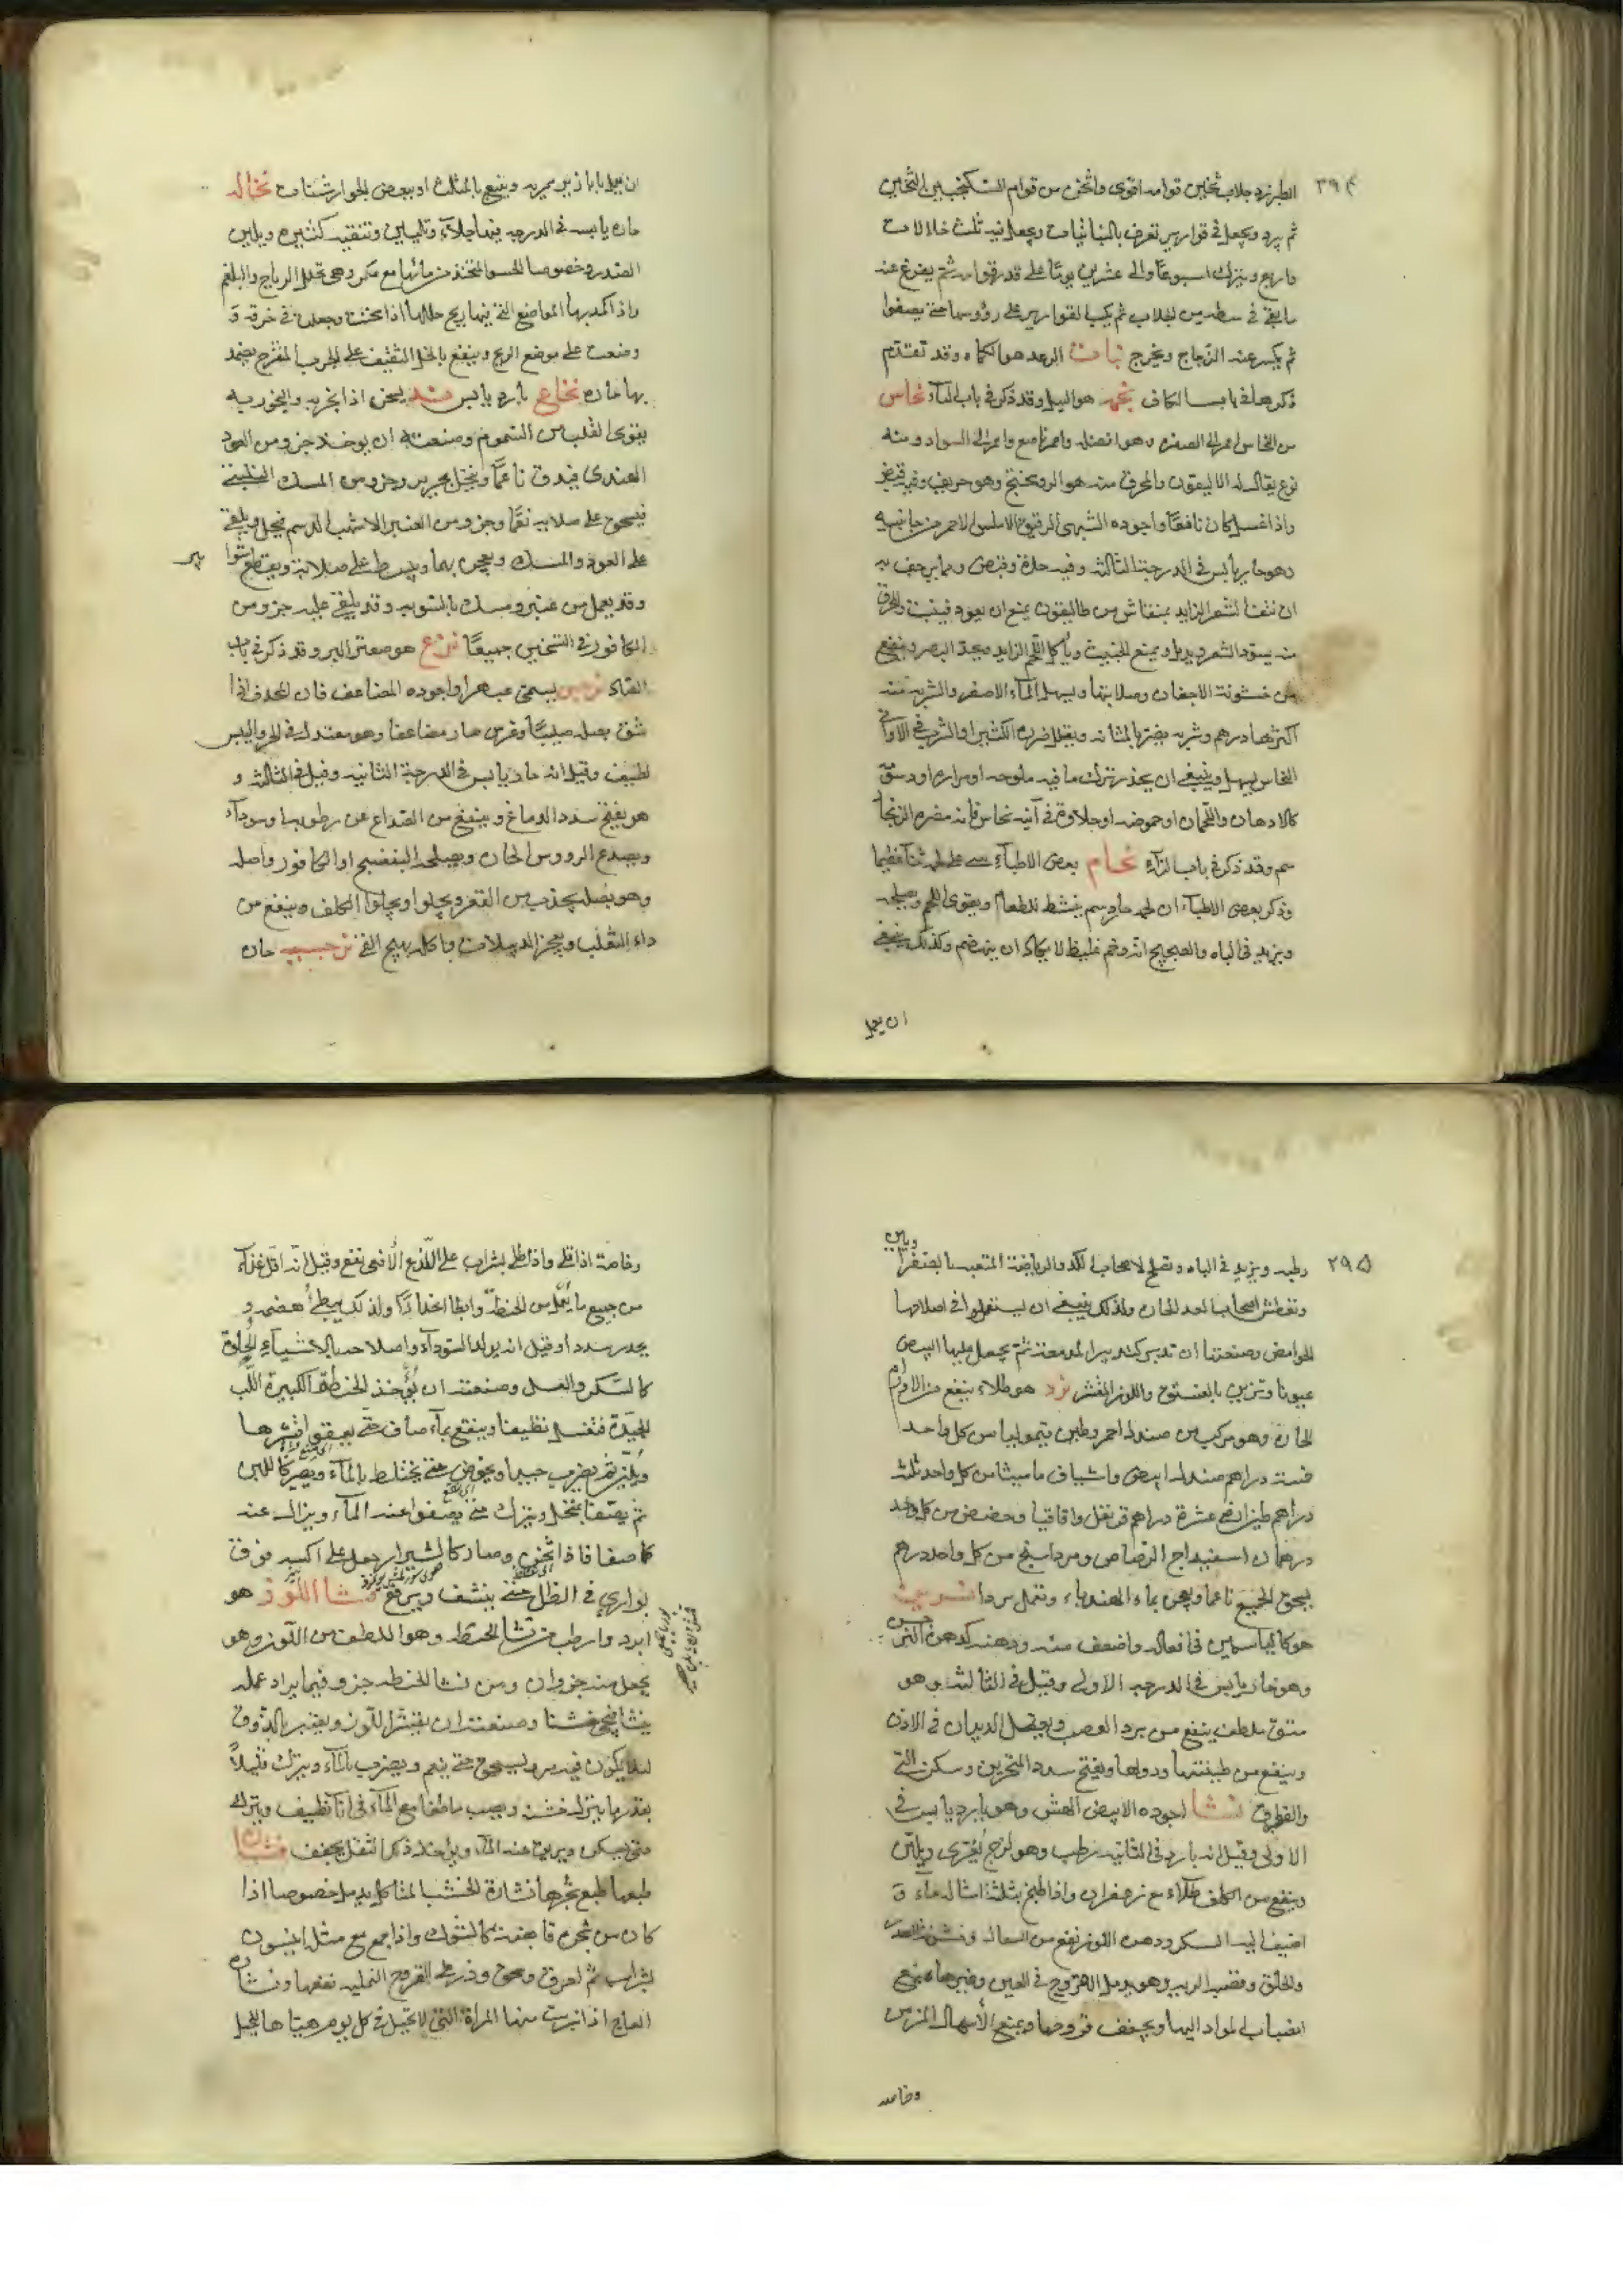 ٢٩٤
الطبرزد جلاب ثخين قوامه اقوى واثخن من قوام السكنجبين الثخين
ثم يبرد ويجعل في قوارير تعرف بالنباتيات ويجعل فيه ثلث خلالات
واربع ويترك اسبوعًا والى عشرين يومًا على قدر قوامه ثم يفرغ عنه
ما بقي في وسطه من الجلاب ثم يكب القوارير على رؤوسها حتى يصفوا
ثم يكسر عنه الزجاج ويخرج نبات الرعد هو الكماه وقد تقدم
ذكرها في باب الكاف هو الثيل وقد ذكر في باب الثاء نحاس
من النحاس احمر الى الصفرة وهو افضله واحمر ناصع واحمر الى السواد ومنه
نوع يقال له الطاليقون والمحرق منه هو الروسختج وهو حريف وفيه قبض
واذا غسل كان نافعًا واجوده الشبهى الرقيق الاملس الاحمر من جانبيه
وهو حار يابس في الدرجة الثالثة وفيه حدة وقبض
ان نتف الشعر الزايد بمنقاش من طاليقون يمنع ان يعود فينبت والمحرق
منه يسود الشعر ويدمل ويمنع الخبيث ويأكل اللحم الزايد ويحد البصر وينفع
من خشونة الاجفان وصلابتها ويسهل الماء الاصفر والشربة منه
اكثرها درهم وشربه يضر بالمثانه ويقلل ضرره الكثيرا والشرب في الاواني
النحاس يسهل وينبغي ان يحذر ترك ما فيه ملوحه او مراره او دسم
كالادهان واللحمان او حموضه او حلاوة في آنيه نحاس فانه مضره الزنجار
سم وقد ذكر في باب الزاء نحام بعض الاطباء على لحمه ثناء عظيما
وذكر بعض الاطباء ان لحمه حار دسم ينشط للطعام ويقوى اللحم ويصلحه
ويزيد في الباه والصحيح انه وخم غليظ لا يكاد ان ينهضم وكذلك ينبغي
ان يعمل
ان يعمل بابازير حريه ويتبع بالمثلث او ببعض الجوارشنات نخاله
حاره يابسه في الدرجه فيها جلاء وتليين وتنقيه كثيره ويلين
الصدر وخصوصا الحسو المتخذ من مائها مع سكر وهي تحلل الرياح والبلغم
واذا كمد بها المواضع التي فيها ريح حللها اذا سخنت وجعلت في خرقة و
وضعت على موضع الريح وينفع بالخل الثقيف على الجرب المتقرح يضمد
بها حاره نخاع بارد يابس يسخن اذا بخر به والبخور به
يقوى القلب من السموم وصنعته ان يوخذ جزو من العود
الهندى فيدق ناعمًا وينخل بحرير وجزو من المسك
فيسحق على صلايه نعمًا وجزو من العنبر الاشهب الدسم فيحل ويلقى
على العود والمسك ويعجن بهما ويبسط على صلاية ويقطع شوابير
وقد يعمل من عنبر ومسك بالسويه وقد يلقى عليه جزو من
الكافور في النسختين جميعًا هو صعتر البر وقد ذكر في باب
نرجس يسمى عبهر واجوده المضاعف فان المحدف اذا
شق بصله صليبًا وغرس صار مضاعفا وهو معتدل في الحر واليبس
لطيف وقيل انه حار يابس في الدرجة الثانيه وقيل في الثالثه و
هو يفتح سدد الدماغ وينفع من الصداع عن رطوبه وسوداء
ويصدع الرووس الحاره ويصلحه البنفسج او الكافور واصله
وهو بصله يجذب من القعر ويجلوا ويجلوا الكلف وينفع من
داء الثعلب ويفجر الدبيلات واكله يهيج القئ حاره
٢٩٥
رطبه ويزيد في الباه وتصلح لاصحاب الكد والرياضة المتعبه
وتعطش اصحاب المعد الحاره ولذلك ينبغي ان يستعملوا في اصلاحها
الحوامض وصنعتها ان تدبر كتدبير المدمعه ثم يجعل عليها البيض
عيونا وتزين بالفستق واللوز المقشر نرد هو طلاء ينفع من الاورام
الحارة وهو مركب من صندل احمر وطين قيموليا من كل واحد
خمسة دراهم صندل ابيض واشياف ماميثا من كل واحد ثلثه
دراهم طين ارمني عشرة دراهم قرنفل واقاقيا وحضض من كل واحد
درهمان اسفيداج الرصاص ومرداسنج من كل واحد درهم
يسحق الجميع ناعمًا ويعجن بماء الهندباء وتعمل نردا نسرين
هو كالياسمين في افعاله واضعف منه ودهنه كدهن النرجس
وهو حار يابس في الدرجه الاولى وقيل في الثالثه وهو
منق ملطف ينفع من برد العصب ويقتل الديدان في الاذن
وينفع من طنينها ودويها ويفتح سدد المنخرين ويسكن القئ
والفواق نشا اجوده الابيض الهش وهو بارد يابس في
الاولى وقيل انه بارد في الثانيه رطب وهو لزج يغرى ويلين
وينفع من الكلف طلاء مع زعفران واذا طبخ بثلثة امثاله ماء و
اضيف اليه السكر ودهن اللوز نفع من السعال وخشونة الصدر
والحلق وقصبه الريه وهو يدمل القروح في العين وغيرها ويمنع
انصباب المواد اليها ويجفف قروحها ويمنع الاسهال المزمن
وخاصه
وخاصة اذا قلى واذا طلى بشراب على اللذع الأفعى نفع وقيل انه اقل غذاء
من جميع ما يعمل من الحنطه وابطا انحدارًا ولذلك يبطئ هضمه و
يحدث سددا وقيل انه يولد السوداء واصلاحه بالاشياء الحلوة
كالسكر والعسل وصنعته ان يؤخذ الحنطة الكبيرة اللب
الجيدة فتغسل نظيفا وينقع بماء صاف حتى قشرها
ويلين ثم يضرب جيدا ويخوض حتى يختلط بالماء ويصير كاللبن
ثم يصفا بمنخل ويترك حتى يصفوا عنه الماء ويزال عنه
كلما صفا فاذا ثخن وصار كالشيراز جعل على اكسيه فوق
بوارى في الظل حتى ينشف ويرفع نشا اللوز هو
ابرد وارطب من نشا الحنطه وهو الطف من اللوز وهو
يعمل منه جزوان ومن نشا الحنطه جزو فيما يراد عمله
وصنعته ان يقشر اللوز ويعتبر بالذوق
لئلا يكون فيه مر ويسحق حتى ينعم ويضرب بالماء ويترك قليلاً
بقدر ما ينزل خشنه ويصب ما طفا مع الماء في اناء نظيف ويترك
حتى يسكن ويراق عنه الماء ويؤخذ ذلك الثفل يجفف نشاره
طبعها طبع شجرها نشارة الخشب المتاكل يدمل خصوصا اذا
كان من شجرة قابضه كالشوك واذا جمع مع مثل انيسون
بشراب ثم احرق وسحق وذر على القروح النمليه نفعها ونشاره
العاج اذا شربت منها المراة التي لا تحبل في كل يوم هياها للحبل